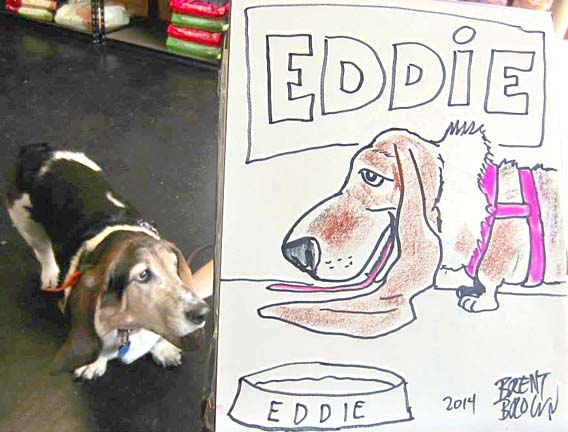 EDDiE
EDDIE
2014
BRENT
BROWN